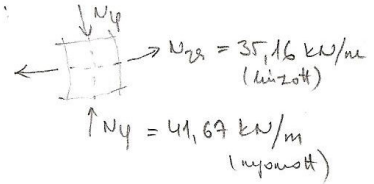 Nφ
Nϑ = 35,16 kN/m
(húzott)
Nφ = 41,67 kN/m
(nyomott)